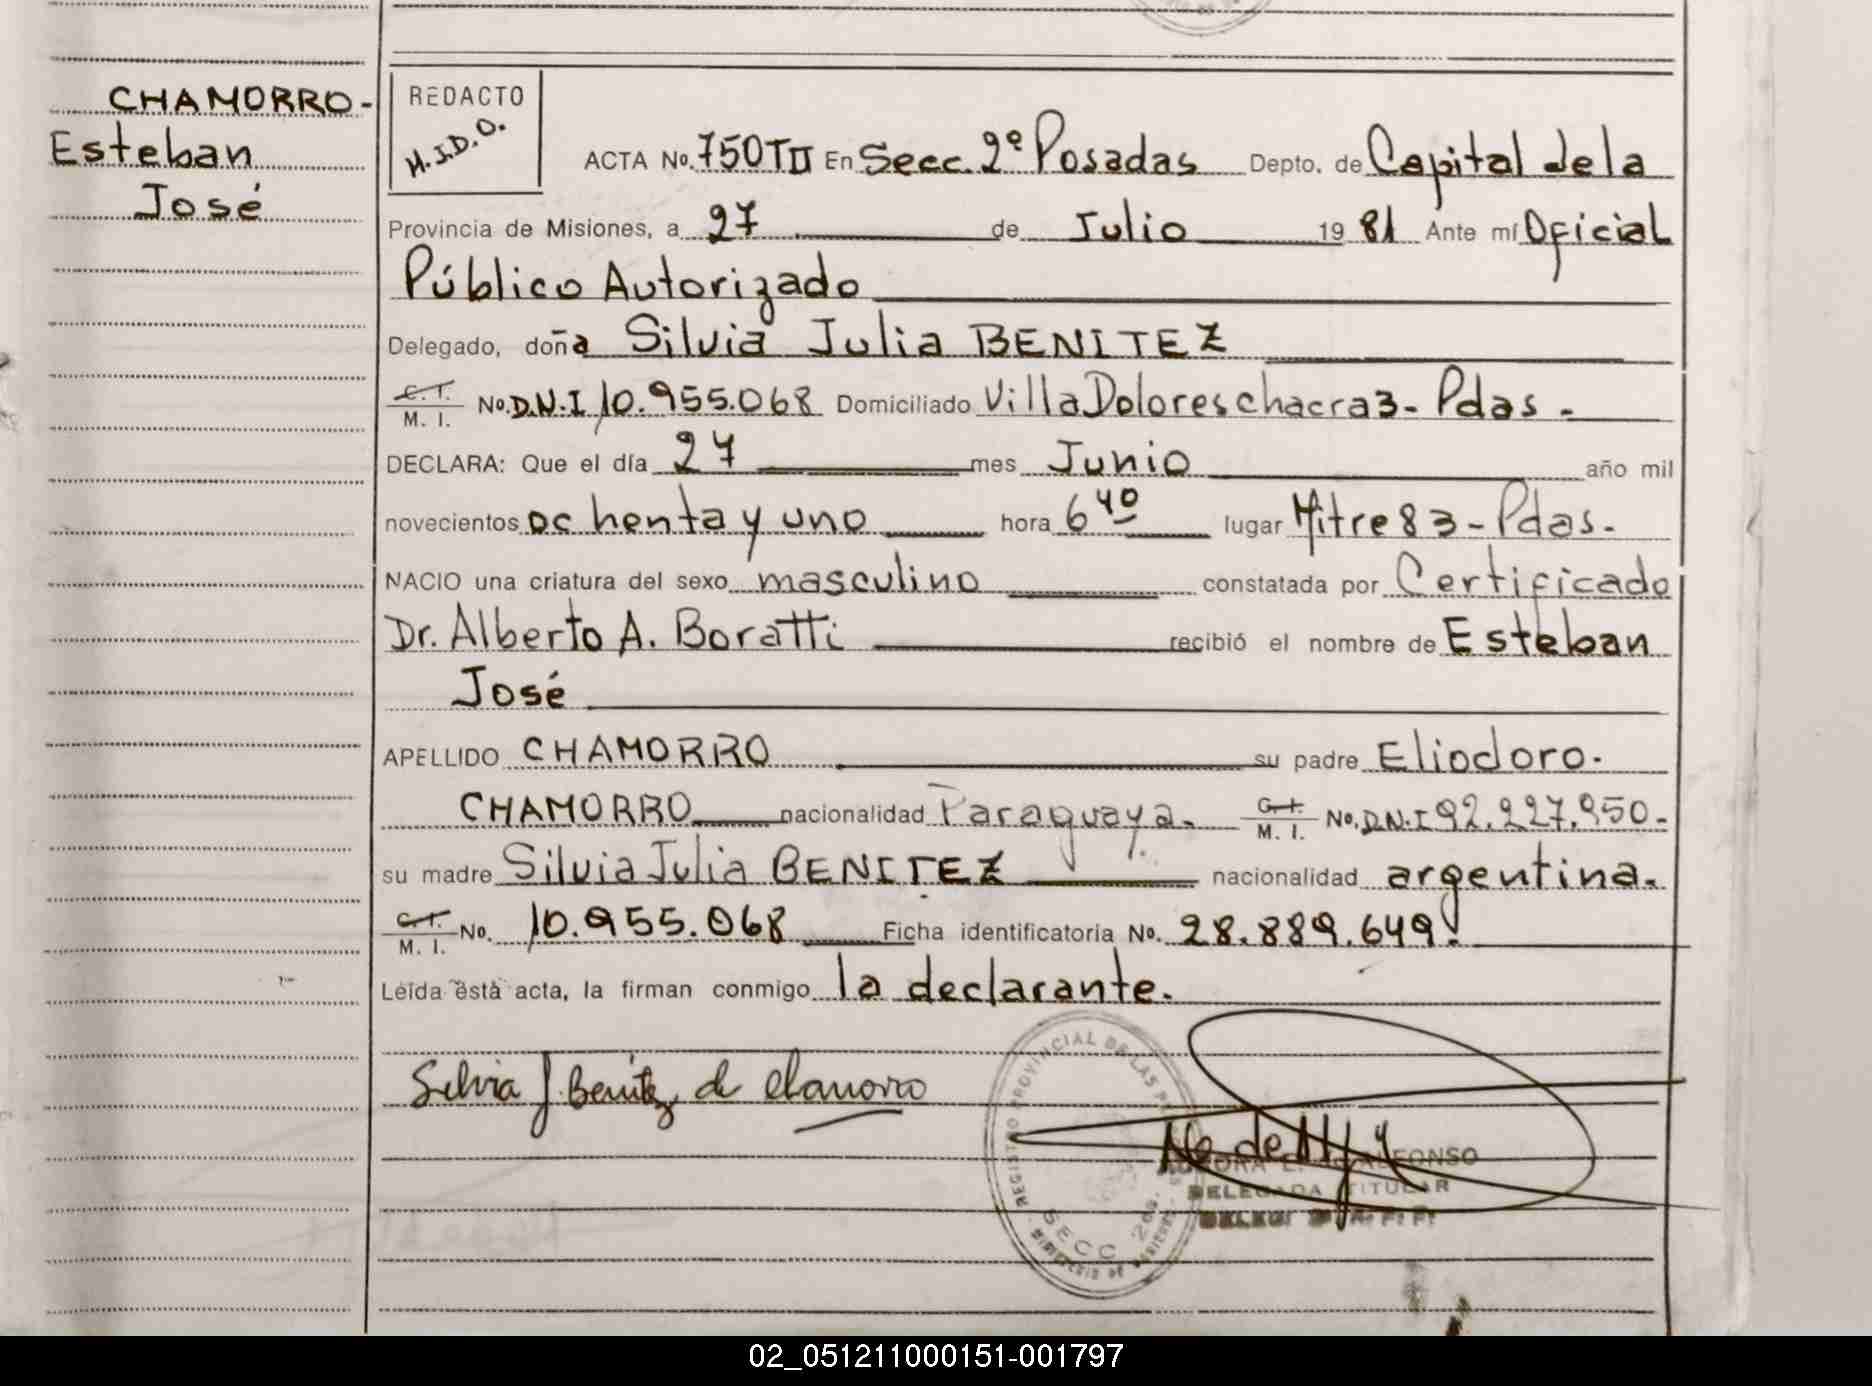 CHAMORRO-
Esteban
José
REDACTO
M.I.D.O.
ACTA No. 750 T II En Secc. 2º Posadas Depto. de Capital de la
Provincia de Misiones, a 27 de Julio 19 81 Ante mí Oficial
Público Autorizado
Delegado, doña Silvia Julia BENITEZ
C.I.
M. I. No. D.N.I 10.955.068 Domiciliado Villa Dolores chacra 3- Pdas-
DECLARA: Que el día 27 mes Junio año mil
novecientos ochenta y uno hora 6 40 lugar Mitre 83- Pdas-
NACIO una criatura del sexo masculino constatada por Certificado
Dr. Alberto A. Boratti recibió el nombre de Esteban
José
APELLIDO CHAMORRO su padre Eliodoro.
CHAMORRO nacionalidad Paraguaya. C.I.
M. I. No. D.N.I 92.227.950-
su madre Silvia Julia BENITEZ nacionalidad argentina.
C.I.
M. I. No. 10.955.068 Ficha identificatoria No. 28.889.649.
Leída está acta, la firman conmigo la declarante.
Silvia J Benitez de Chamorro
REGISTRO PROVINCIAL DE LAS
SECC 2da.
DELEGADA TITULAR
02_051211000151-001797